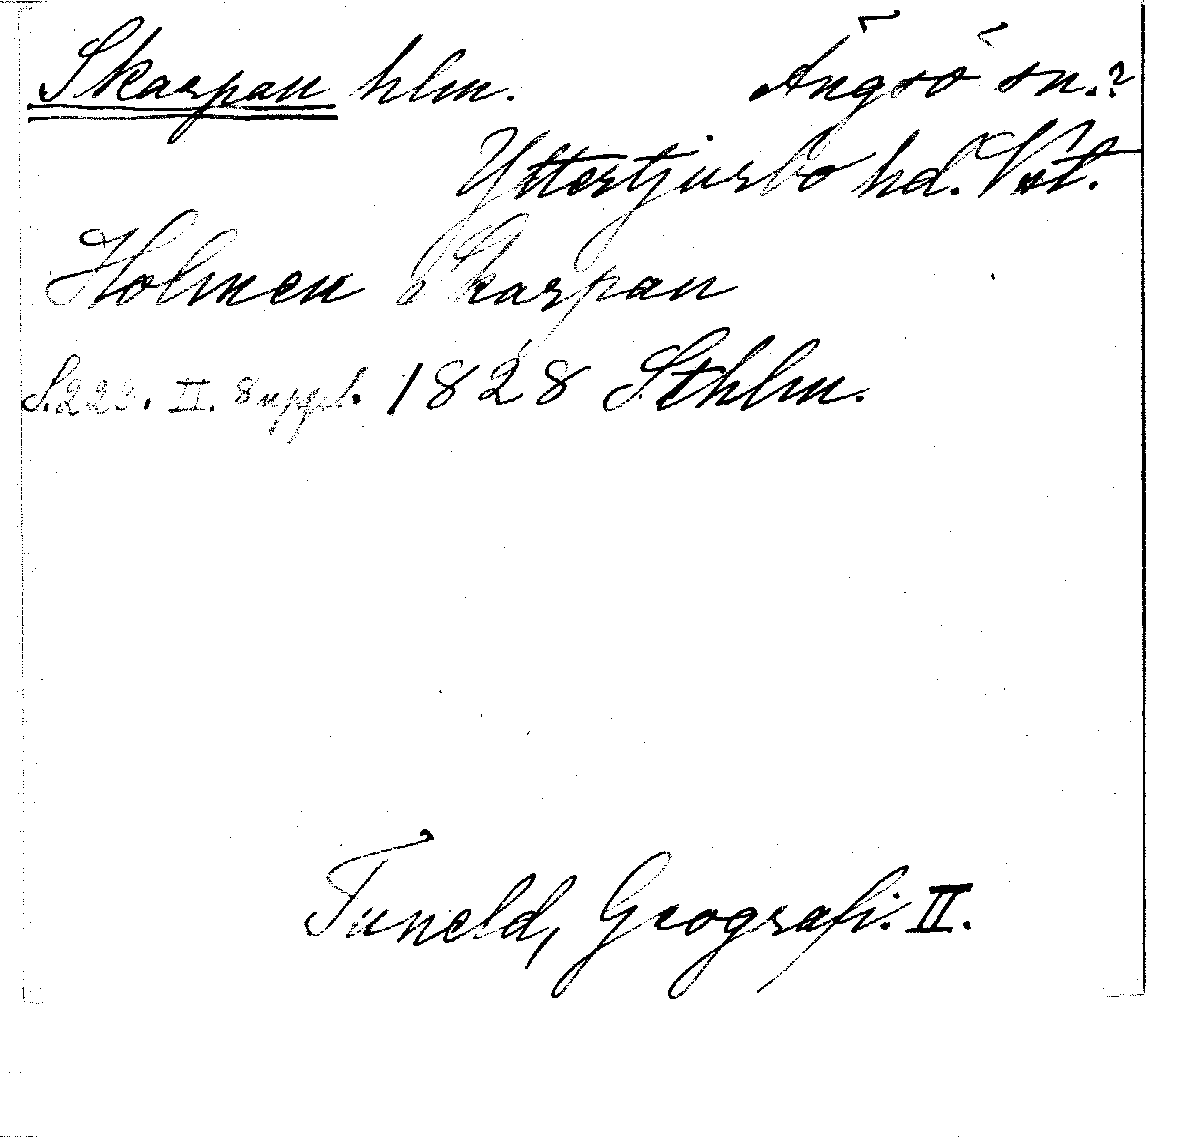 Skarpan hlm. Ängsö sn.?
Yttertjurbo hd. Vstl.
Holmen Skarpan
S. 223. II. Suppl. 1828 Sthlm.
Tuneld, Geografi. II.